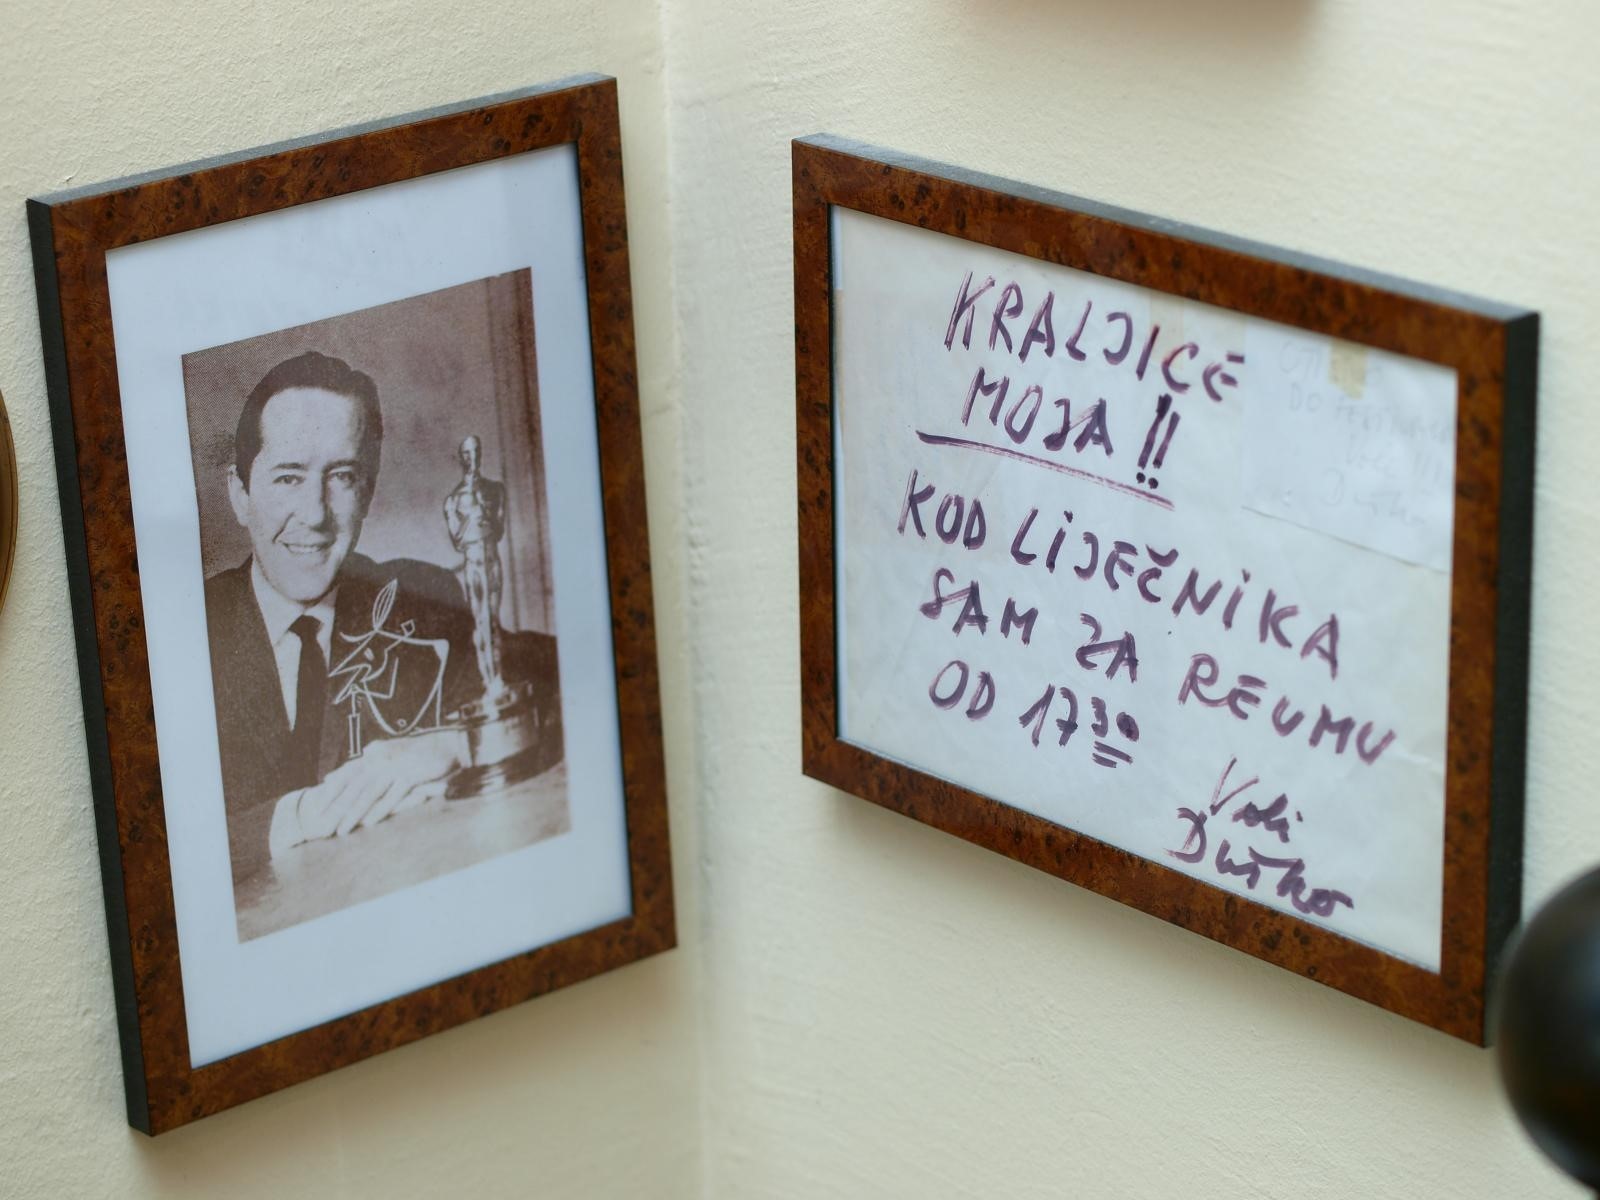 KRALJICE
MOJA !!
KOD LIJEČNIKA
SAM ZA REUMU
OD 17 30
Voli
Duško